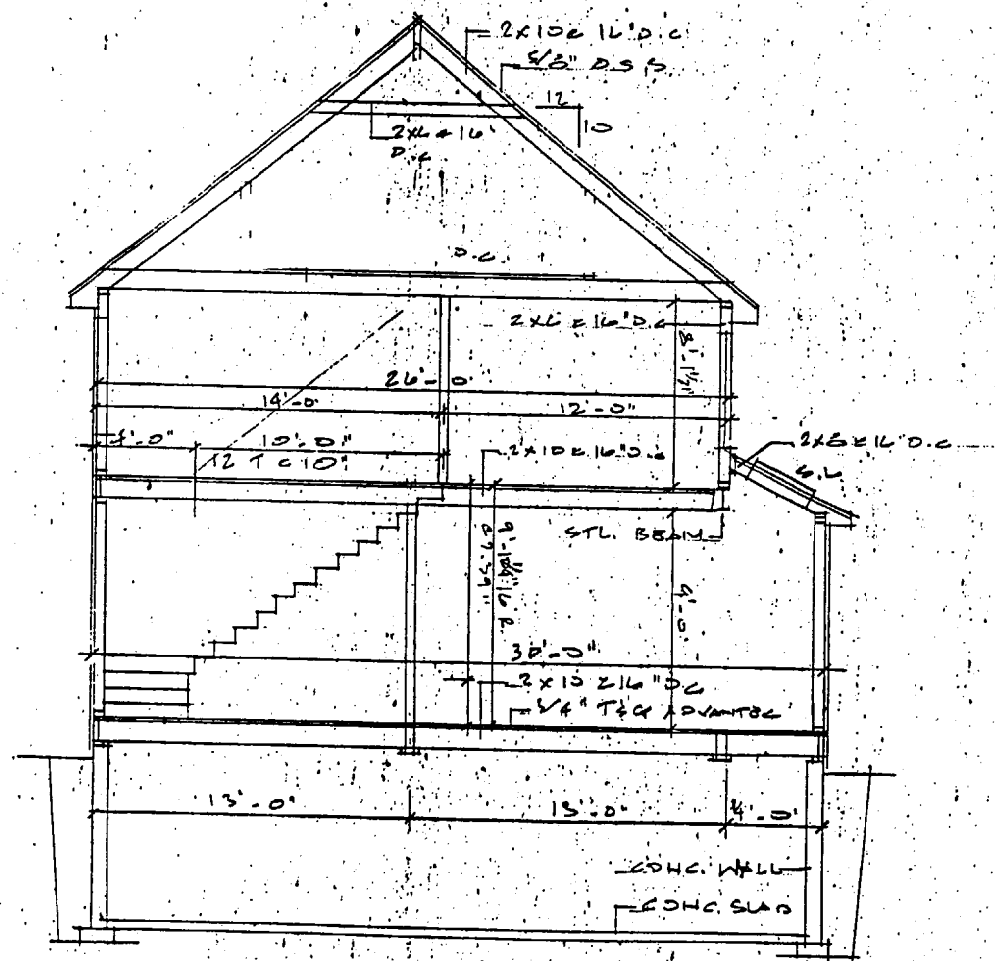 2x10 @ 16" O.C
5/8" O S B
12
10
2x6 @ 16"
O.C
O.C.
2x6 @ 16" O.C
8'-1½"
26'-0"
14'-0"
12'-0"
4'-0"
10'-0"
12 T @ 10"
2x10 @ 16" O.C
2x8 @ 16" O.C
STL. BEAM
9'-0"
30'-0"
2x10 @ 16" O.C
3/4" T&G ADVANTEC
13'-0"
13'-0"
4'-0"
CONC. WALL
CONC. SLAB